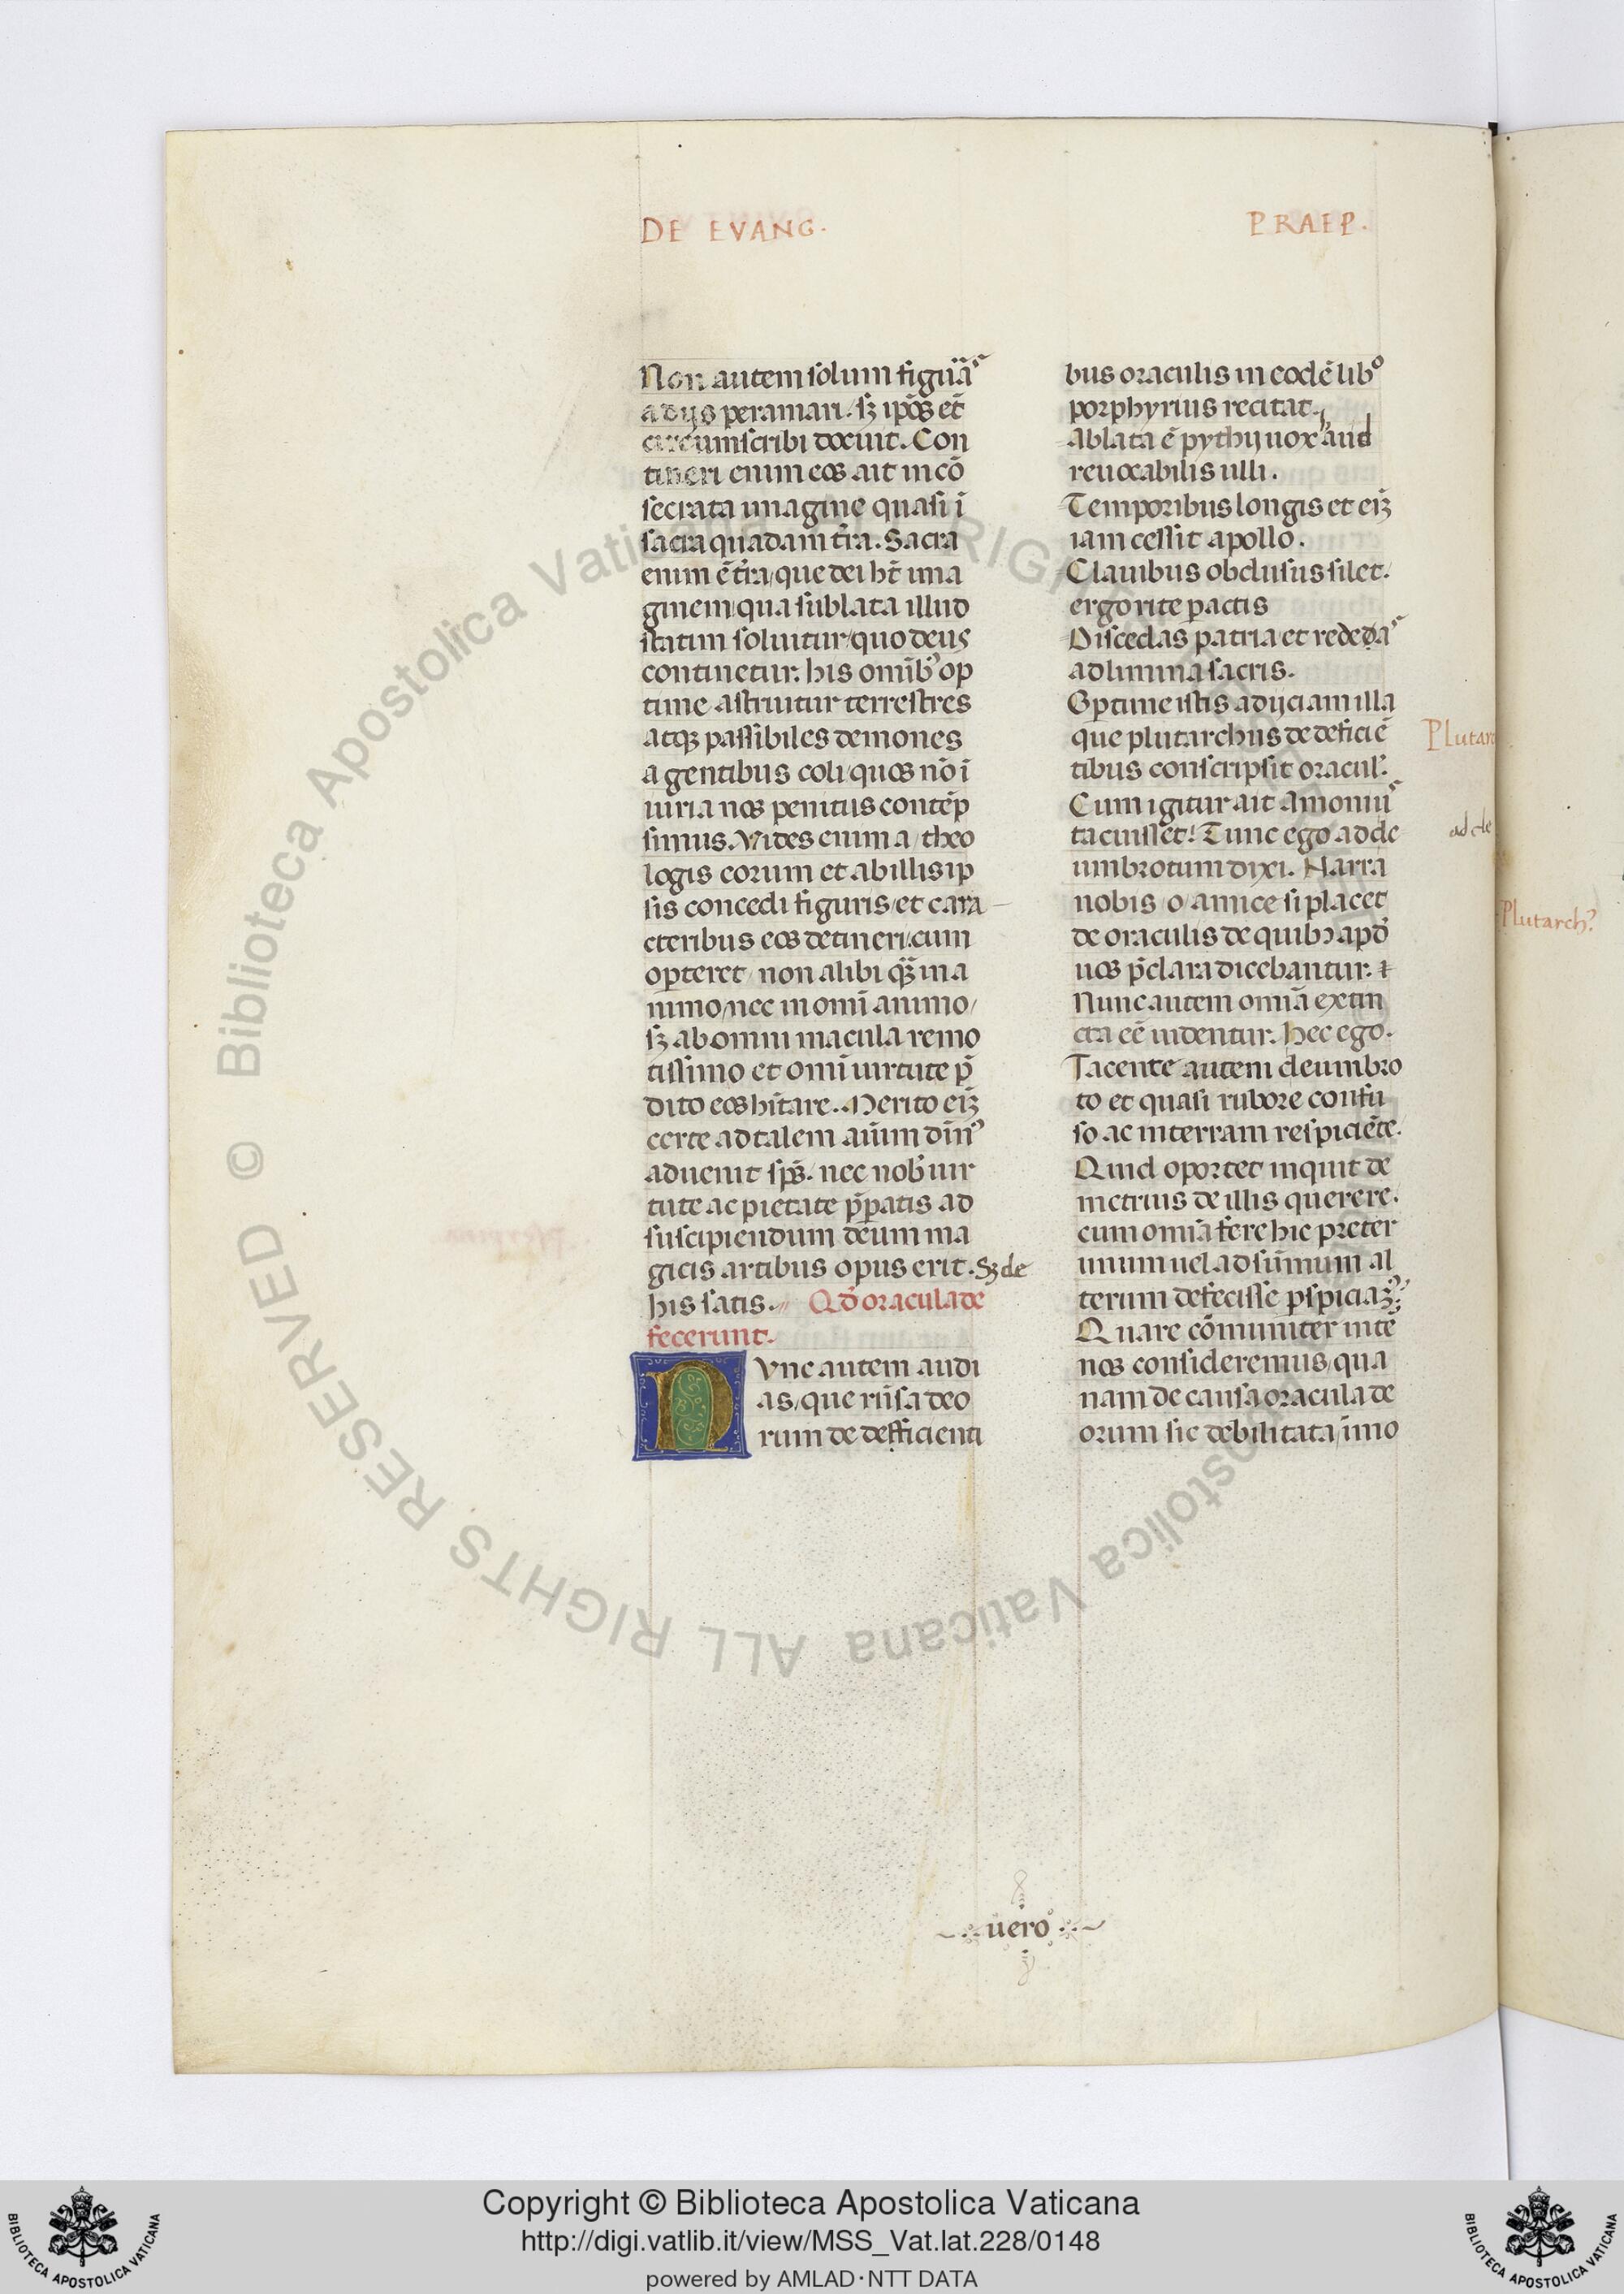 DE EVANG.
PRAEP.
Non autem solum figurā
a dijs peramari. sꝫ ipōs et̄
circumscribi docuit. Con
tineri enim eos ait in cō
secrata imagine quasi ī
sacra quadam tr̄a. Sacra
enim ē tr̄a/ que dei ht̄ ima
ginem/ qua sublata illud
statim soluitur/ quo deus
continetur. his omīb' op
time astruitur terrestres
atqꝫ passibiles demones
a gentibus coli/ quos nō ī
iuria nos penitus contēp
simus. Vides enim a/ theo
logis eorum et ab illis ip
sis concedi figuris/ et cara
cteribus eos detineri. cum
oporteret/ non alibi qꝫ̄ in a
nimo/ nec in omī animo/
sꝫ ab omni macula remo
tissimo et omī uirtute p̄
dito eos hītare. Merito eīꝫ
certe ad talem aīum dīn'
aduenit sp̄s. nec nob' uir
tute ac pietate p̄paratis ad
suscipiendum deum ma
gicis artibus opus erit. Sꝫ de
his satis. Qd̄ oracula de
fecerunt.
NVnc autem audi
as/ que rūsa deo
rum de defficienti
bus oraculis in eodē libº
porphyrius recitat.
Ablata ē pythij uox haud
reuocabilis ulli.
Temporibus longis et eīꝫ
iam cessit apollo.
Clauibus obclusus silet.
ergo rite peractis
Discedas patria et rededa'
ad limina sacris.
Optime istis adijciam illa
que plutarchus de deficiē
tibus conscripsit oracul'.
Cum igitur ait Amoniu'
tacuisset! Tunc ego ad de
umbrotum dixi. Narra
nobis/ o/ amice si placet
de oraculis de quibꝫ apd̄
uos p̄clara dicebantur. ⁊
Nunc autem omīa extin
cta eē uidentur. Hec ego.
Tacente autem deumbro
to et quasi rubore confu
so ac in terram respiciēte.
Quid oportet inquit de
metrius de illis querere.
cum omīa fere hic preter
unum uel ad sūmum al
terum defecisse pspiciaꝫ'
Quare cōmuniter inte
nos consideremus/ qua
nam de causa oracula de
orum sic debilitata/ imo
Plutar
ad de
Plutarch?
uero
Copyright © Biblioteca Apostolica Vaticana
http://digi.vatlib.it/view/MSS_Vat.lat.228/0148
powered by AMLAD·NTT DATA
BIBLIOTECA APOSTOLICA VATICANA
BIBLIOTECA APOSTOLICA VATICANA
© Biblioteca Apostolica Vaticana ALL RIGHTS RESERVED
© Biblioteca Apostolica Vaticana ALL RIGHTS RESERVED